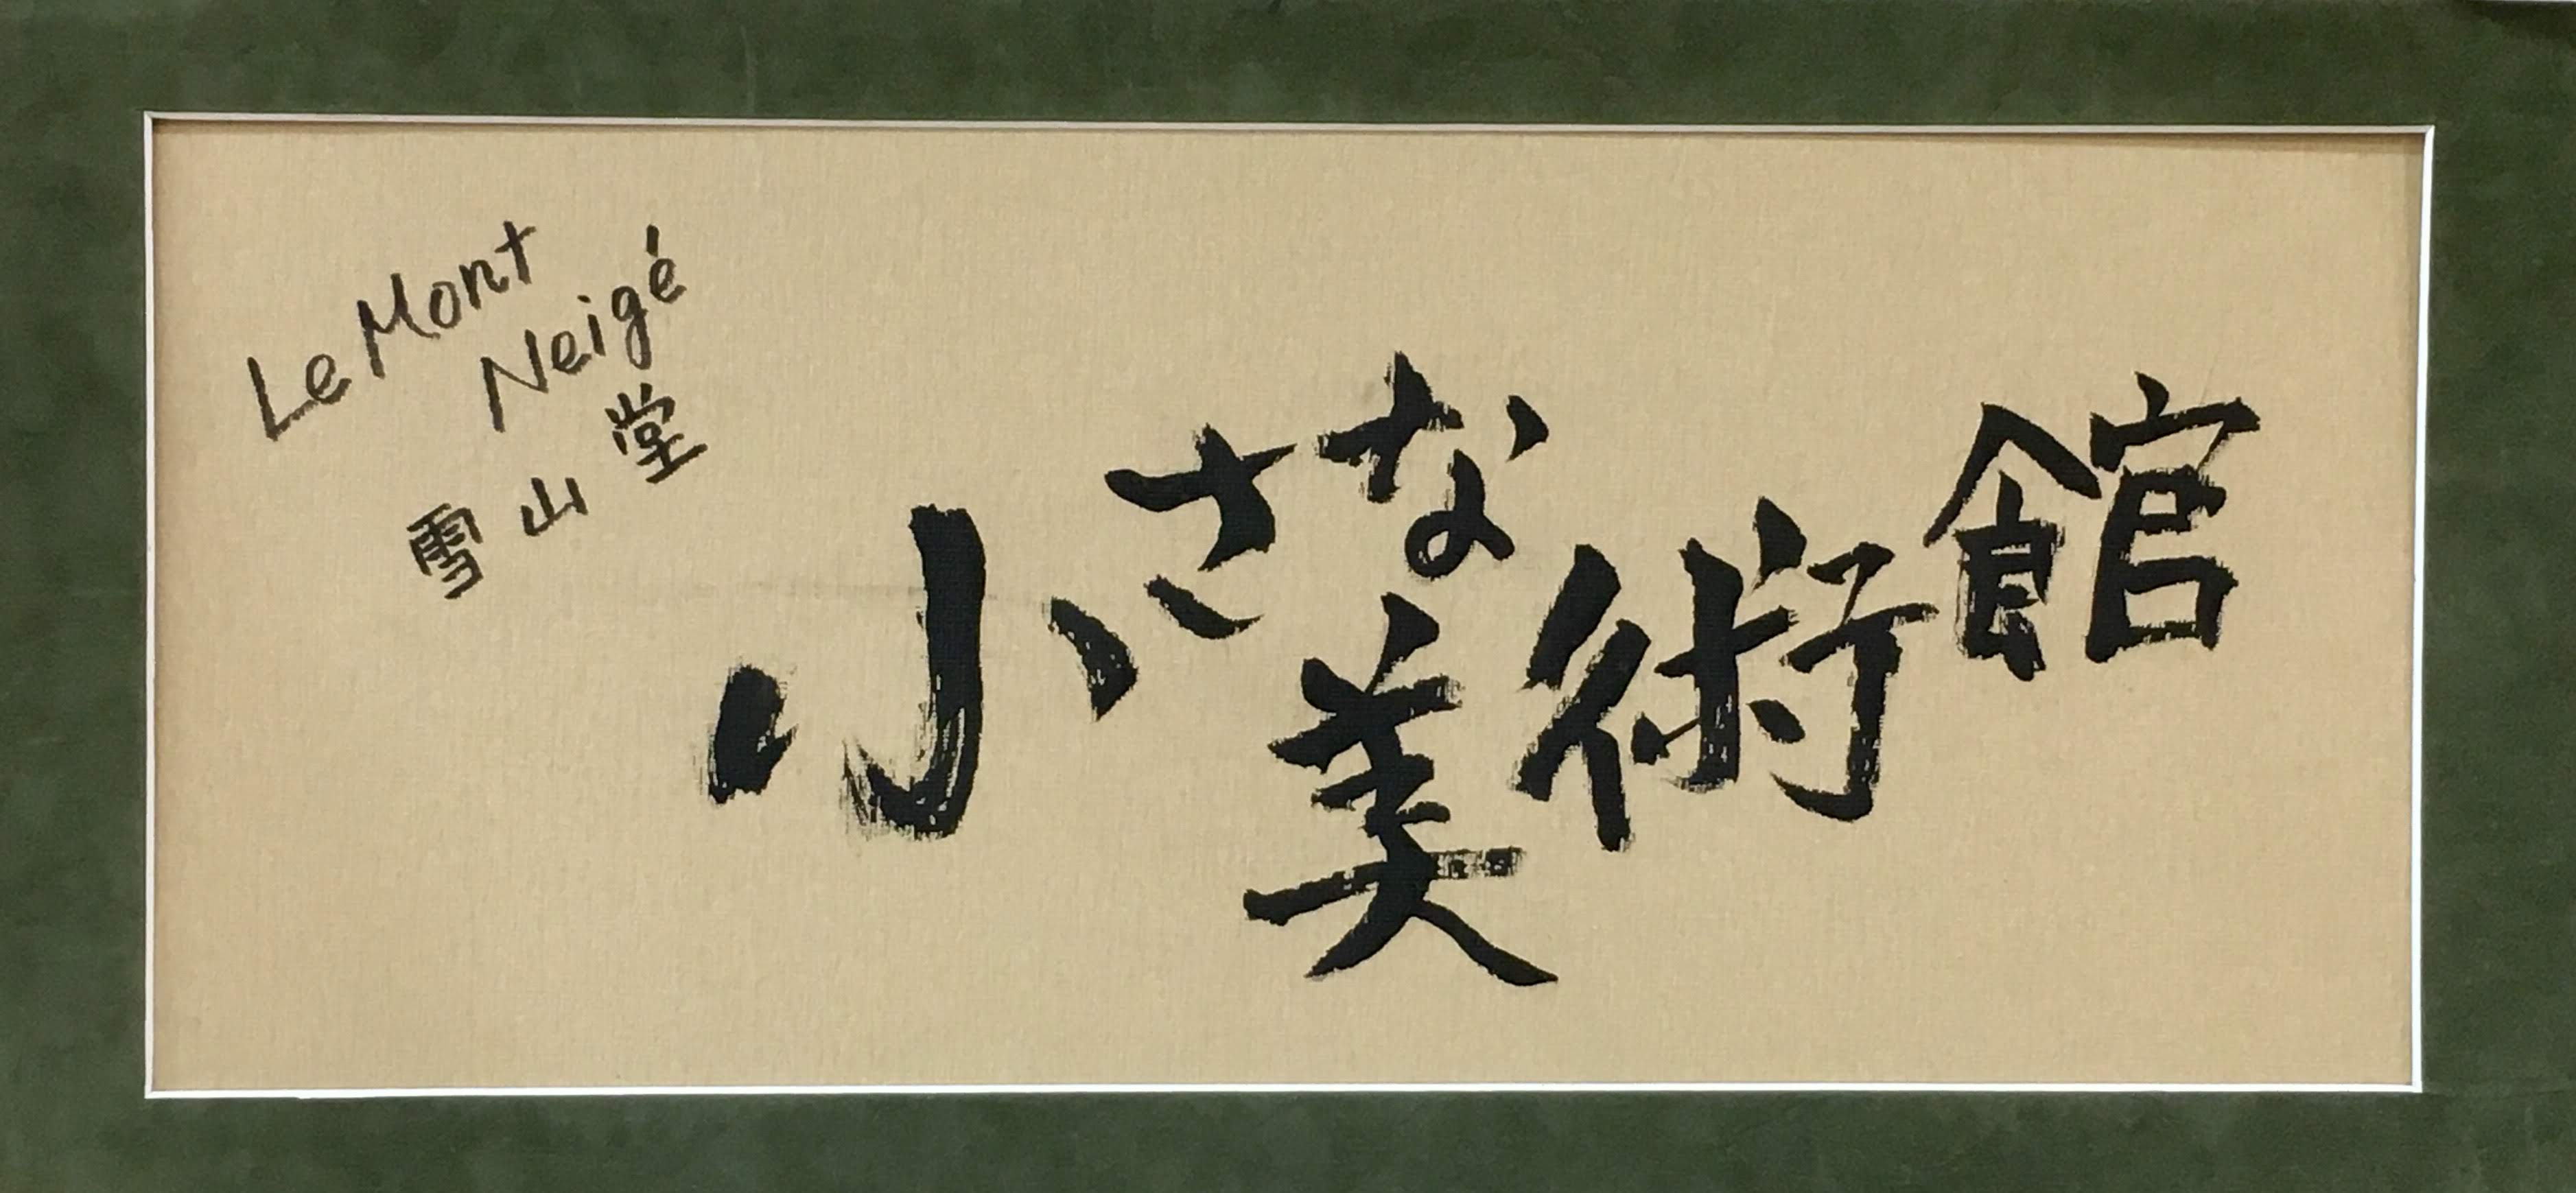 Le Mont
Neigé
雪山堂
小さな
美術館